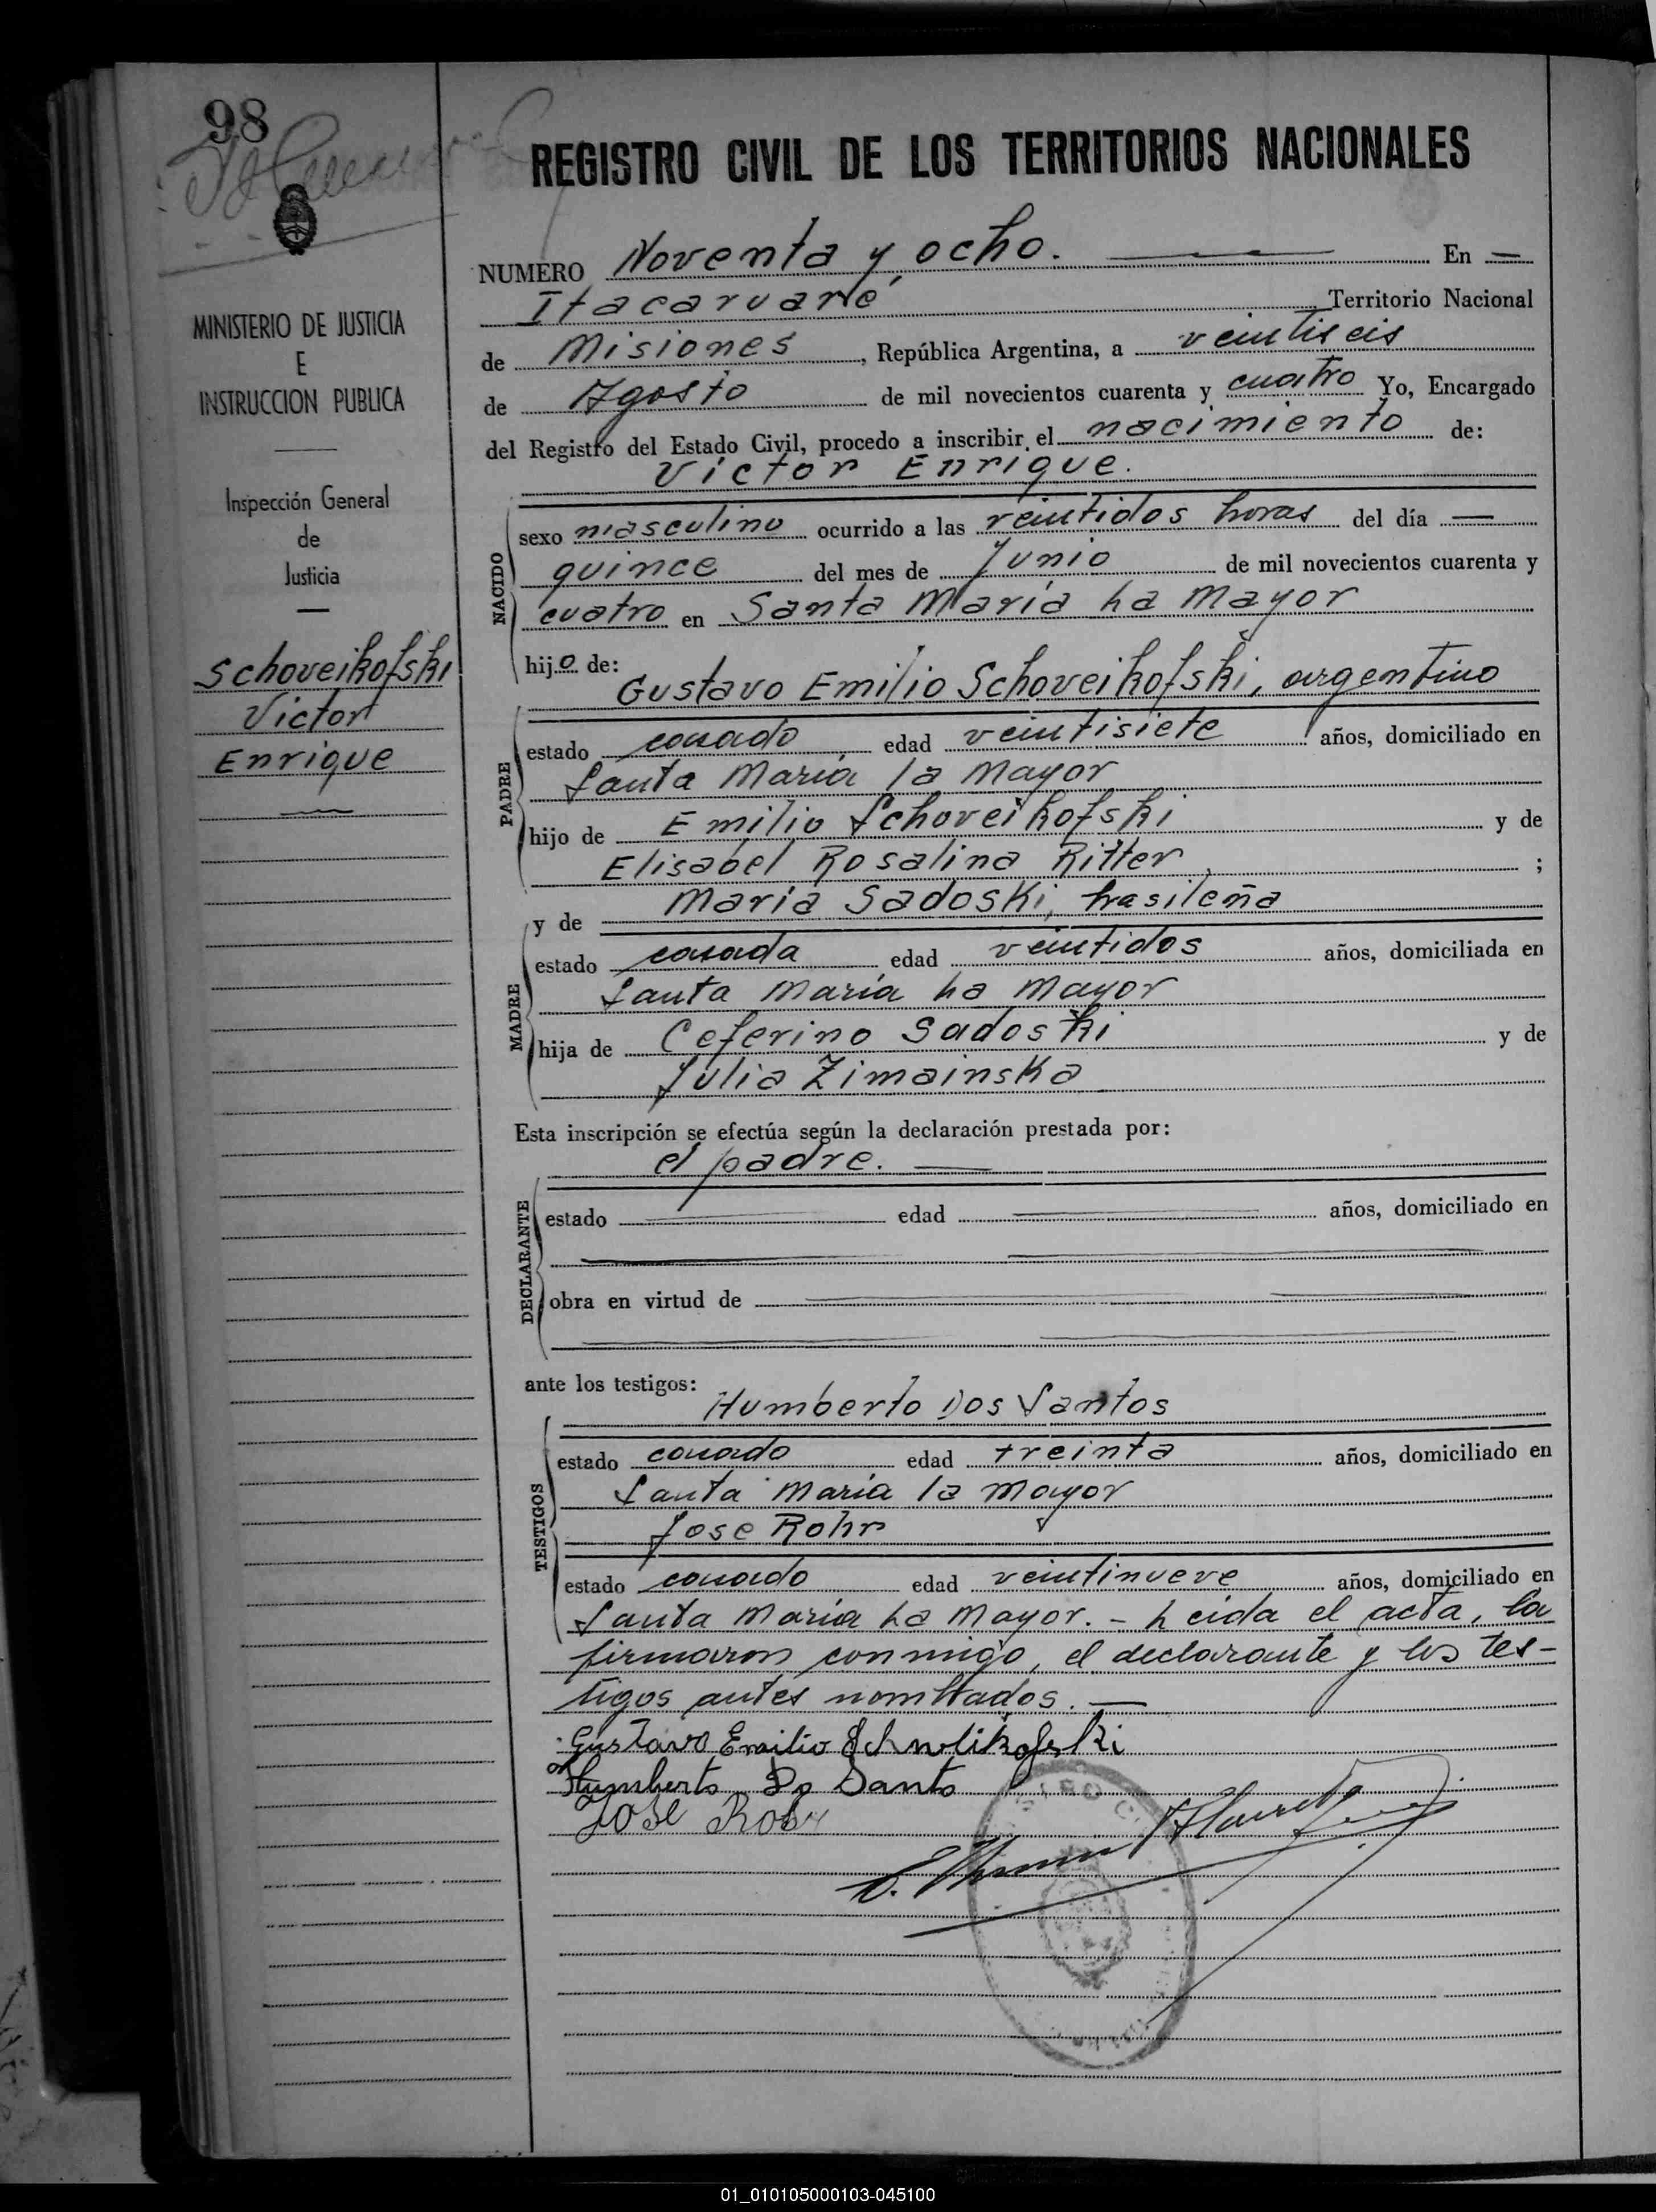 98
REGISTRO CIVIL DE LOS TERRITORIOS NACIONALES
MINISTERIO DE JUSTICIA
E
INSTRUCCION PUBLICA
Inspección General
de
Justicia
Schoveikofski
Victor
Enrique
NUMERO Noventa y ocho. En
Itacaruaré Territorio Nacional
de Misiones, República Argentina, a veintiseis
de Agosto de mil novecientos cuarenta y cuatro Yo, Encargado
del Registro del Estado Civil, procedo a inscribir el nacimiento de:
Victor Enrique.
NACIDO
sexo masculino ocurrido a las veintidos horas del día —
quince del mes de Junio de mil novecientos cuarenta y
cuatro en Santa María La Mayor
hijo de:
Gustavo Emilio Schoveikofski, argentino
PADRE
estado casado edad veintisiete años, domiciliado en
Santa María la Mayor
hijo de Emilio Schoveikofski y de
Elisabel Rosalina Ritter ;
y de María Sadoski, brasileña
MADRE
estado casada edad veintidos años, domiciliada en
Santa María La Mayor
hija de Ceferino Sadoski y de
Julia Zimainska
Esta inscripción se efectúa según la declaración prestada por:
el padre. —
DECLARANTE
estado edad años, domiciliado en
obra en virtud de
ante los testigos:
Humberto Dos Santos
TESTIGOS
estado casado edad treinta años, domiciliado en
Santa María la Mayor
Jose Rohr
estado casado edad veintinueve años, domiciliado en
Santa María La Mayor. - Leida el acta, la
firmaron conmigo, el declarante y los tes-
tigos antes nombrados. —
Gustavo Emilio
Humberto Do Santo
José Rohr
01_010105000103-045100